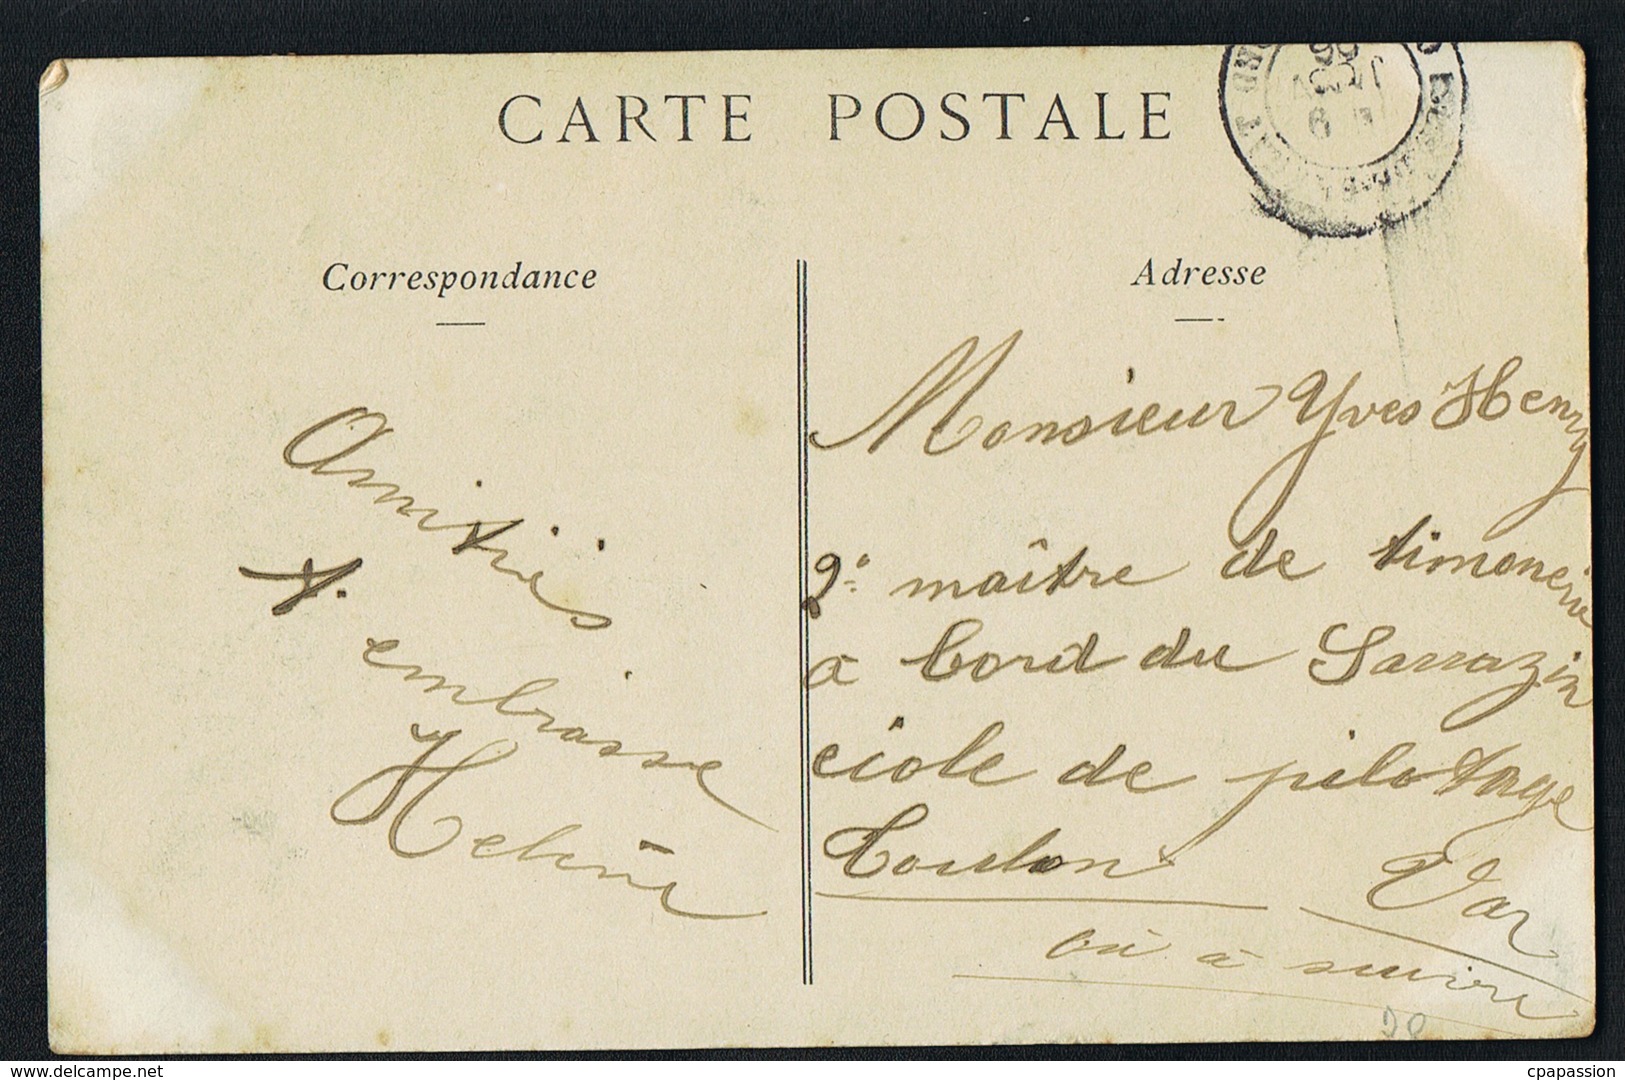 CARTE POSTALE
Correspondance
Amitiés
embrasse
Helène
Adresse
Monsieur Yves Henry
2e maître de timonerie
à bord du Sarrazin
école de pilotage
Toulon Var
ou à suivre
20
www.delcampe.net
cpapassion